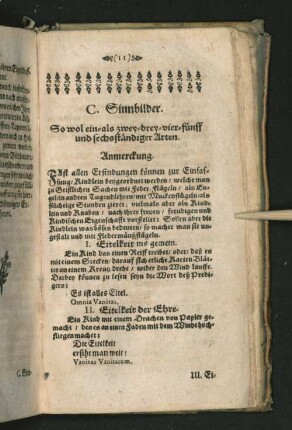 (11)
C. Sinnbilder.
So wol ein-als zwey-drey-vier-fünff
und sechsständiger Arten.
Anmerckung.
FAst allen Erfindungen können zur Einfas-
sung/ Kindlein beygeordnet werden/ welche man
zu Geistlichen Sachen mit Feder-Flügeln/ als En-
gel in andern Tugendlehren/ mit Muckenflügeln/ als
flüchtige Stunden zieret; vielmals aber als Kind-
lein und Knaben/ nach ihrer freuen/ freudigen und
Kindischen Eigenschafft vorstellet: Sollen aber die
Kindlein was böses bedeuten/ so machet man sie un-
gestalt und mit Fledermäußflügeln.
I. Eitelkeit ins gemein.
Ein Kind das einen Reiff treibet: oder/ daß es
mit einem Stecken/ darauf
an einem Kreutz drehe/ wider den Wind lauffe.
Darbey können zu lesen seyn die Wort deß Predi-
gers:
Es ist alles Eitel.
Omnia Vanitas.
II. Eitelkeit der Ehre.
Ein Kind mit einem Drachen von Papier ge-
macht/ den es an einen Faden mit dem Winde hoch-
fliegen machet:
Die Eitelkeit
ersiht man weit;
Vanitas Vanitatum.
III. Ei-